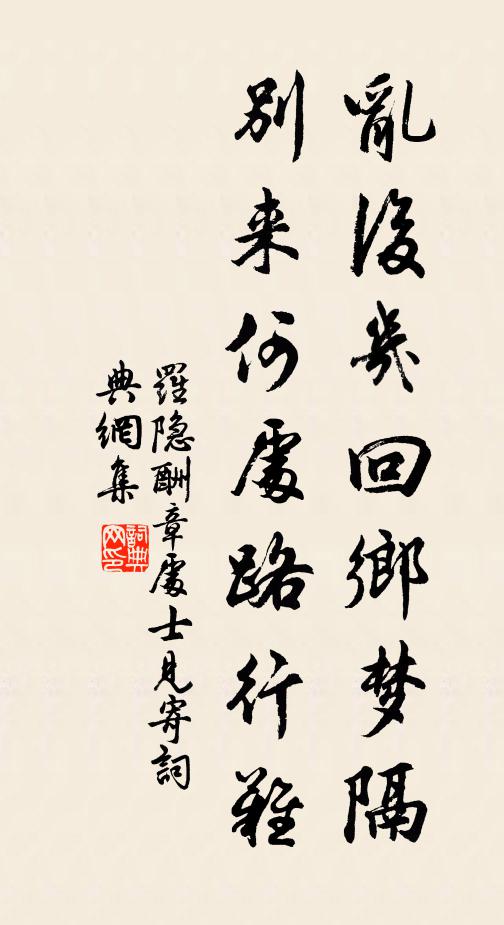 亂後幾回鄉梦隔
別来何處路行難
羅隐酬章處士見寄詞
典網集
詞典网印